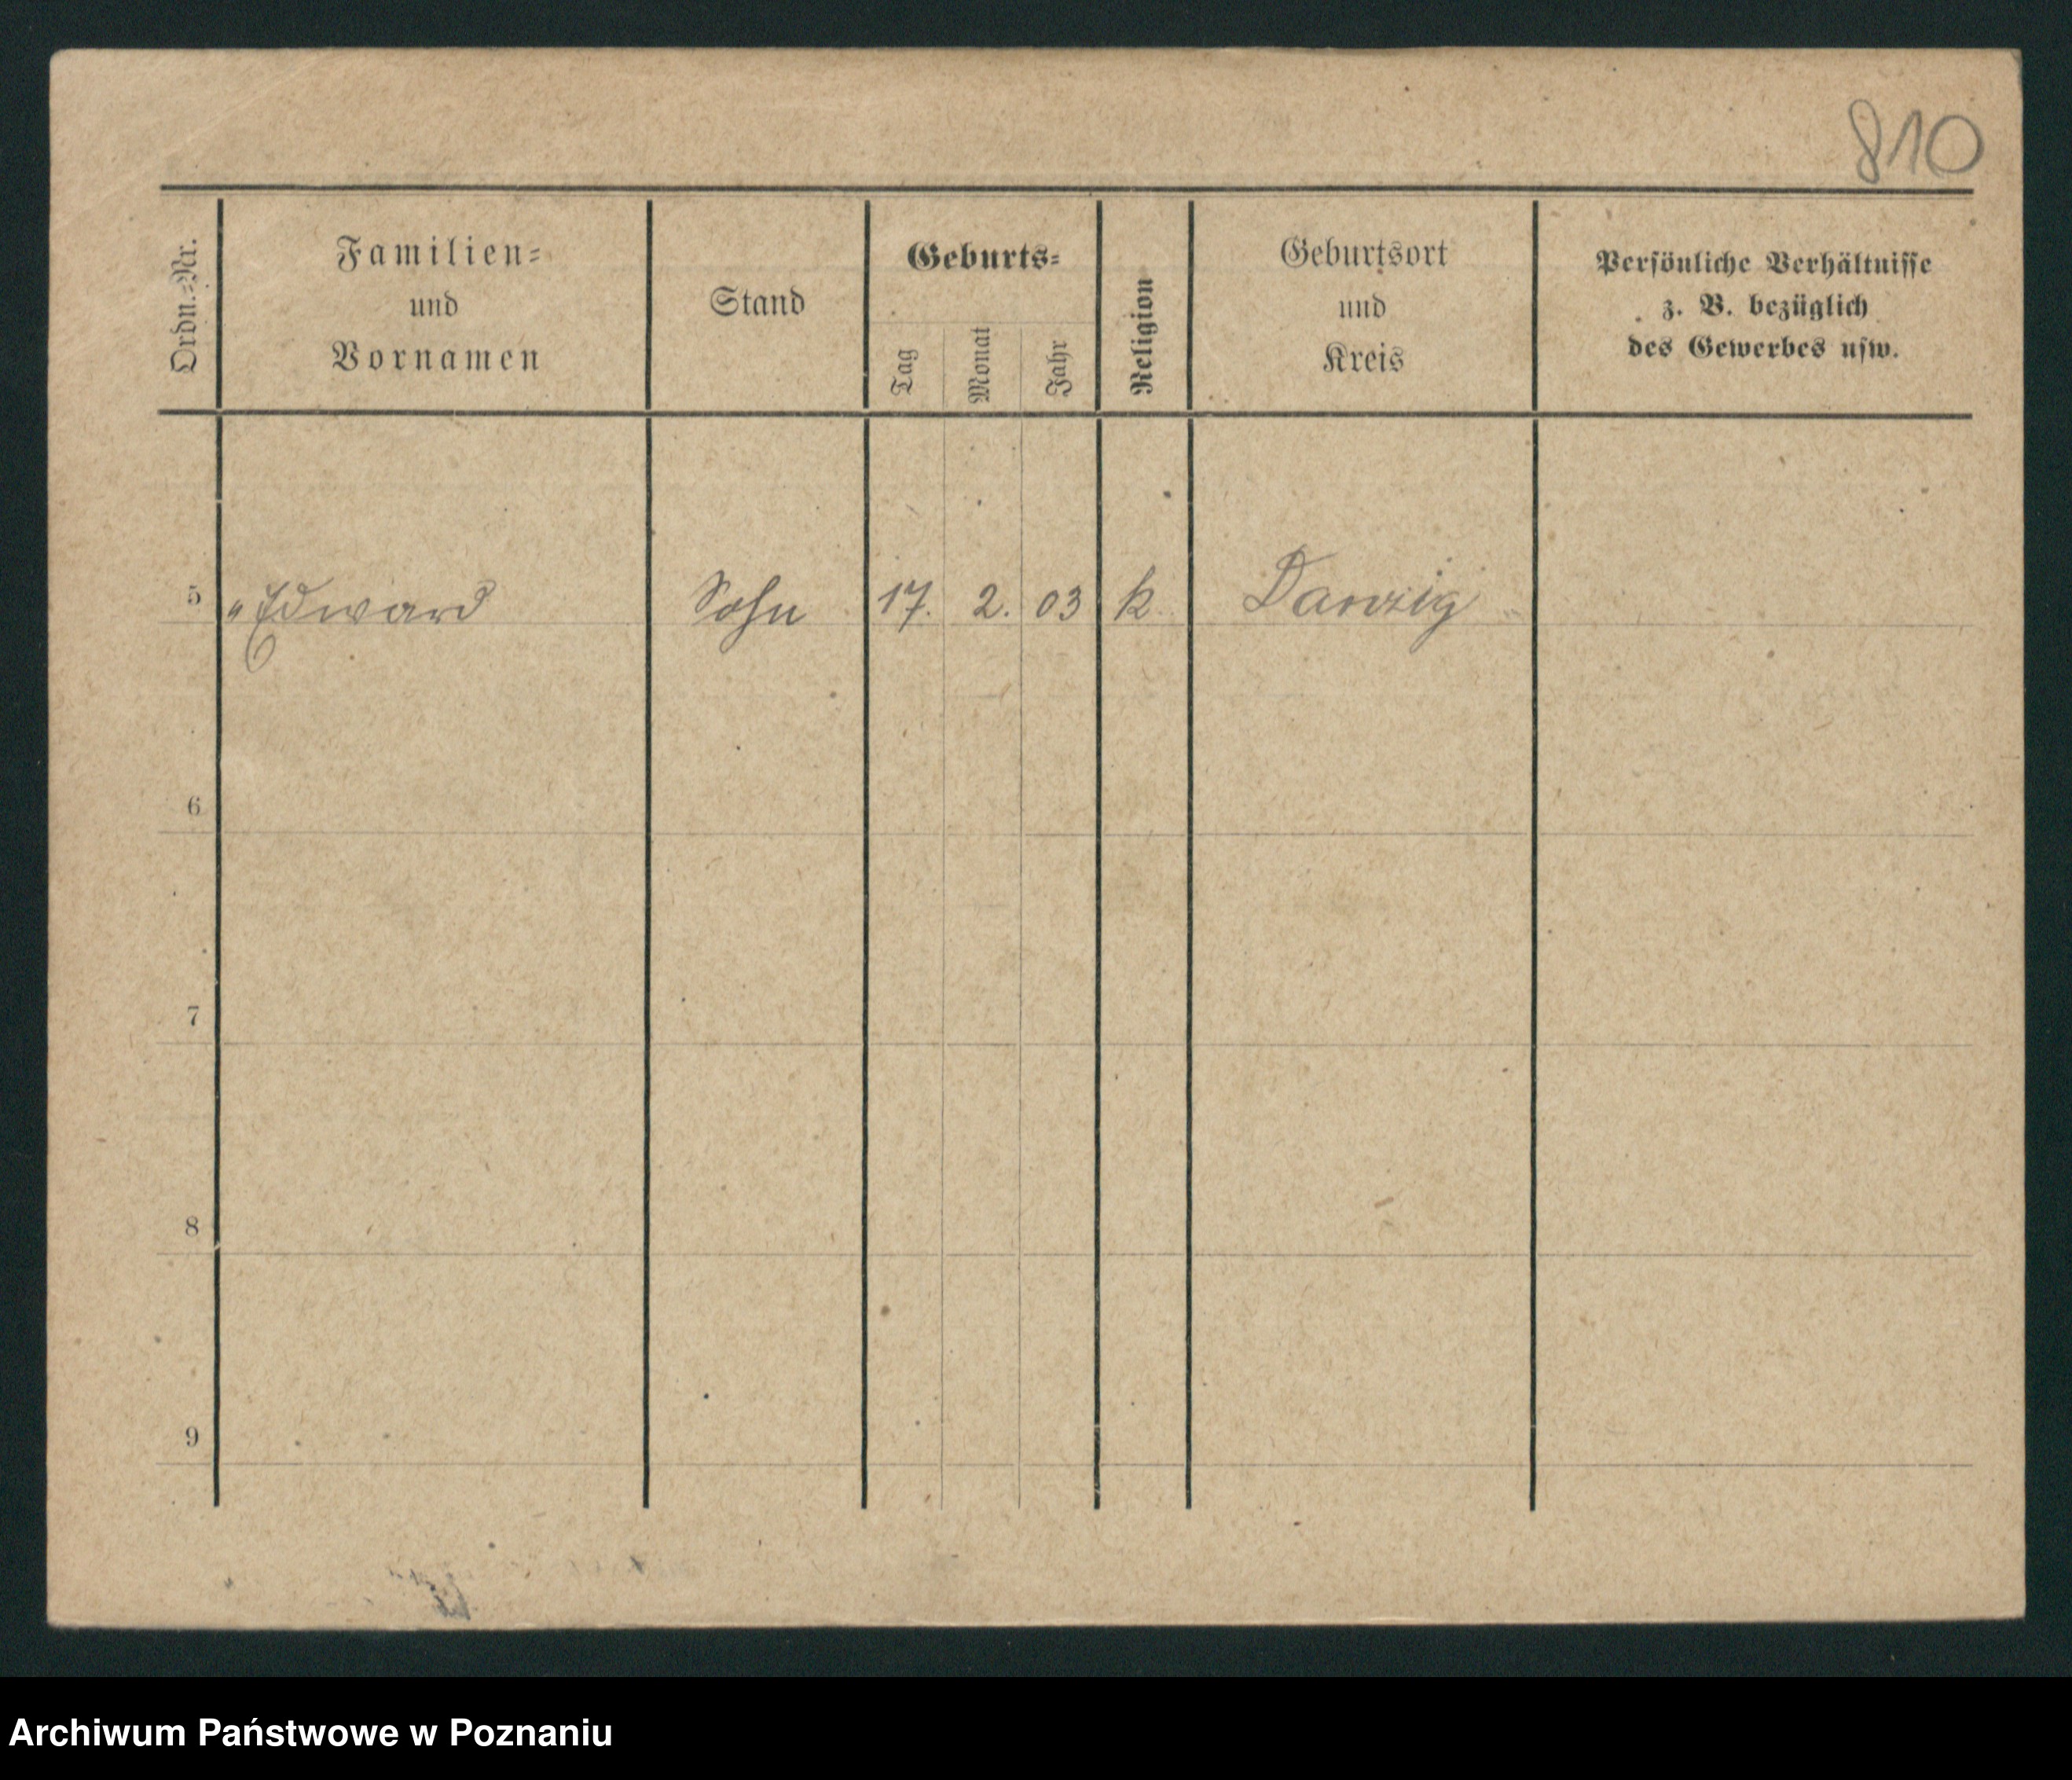 810
Ordn.=Nr.
Familien=
und
Vornamen
Stand
Geburts=
Tag
Monat
Jahr
Religion
Geburtsort
und
Kreis
Persönliche Verhältnisse
z. B. bezüglich
des Gewerbes usw.
5 " Edward Sohn 17. 2. 03 k Danzig
6
7
8
9
Archiwum Państwowe w Poznaniu